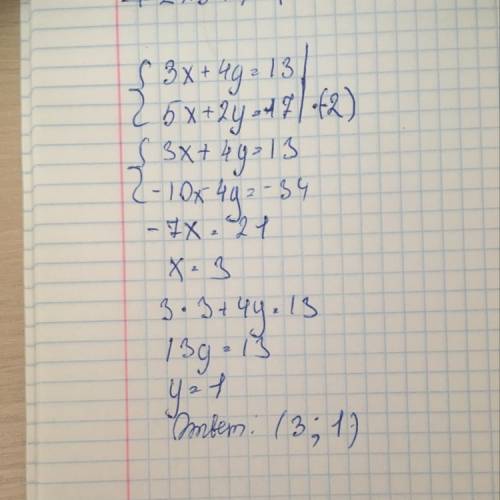 { 3x + 4y = 13 |
{ 5x + 2y = 17 | · (-2)
{ 3x + 4y = 13
{ -10x - 4y = -34
-7x = -21
x = 3
3 · 3 + 4y = 13
13y = 13
y = 1
Ответ: (3; 1)